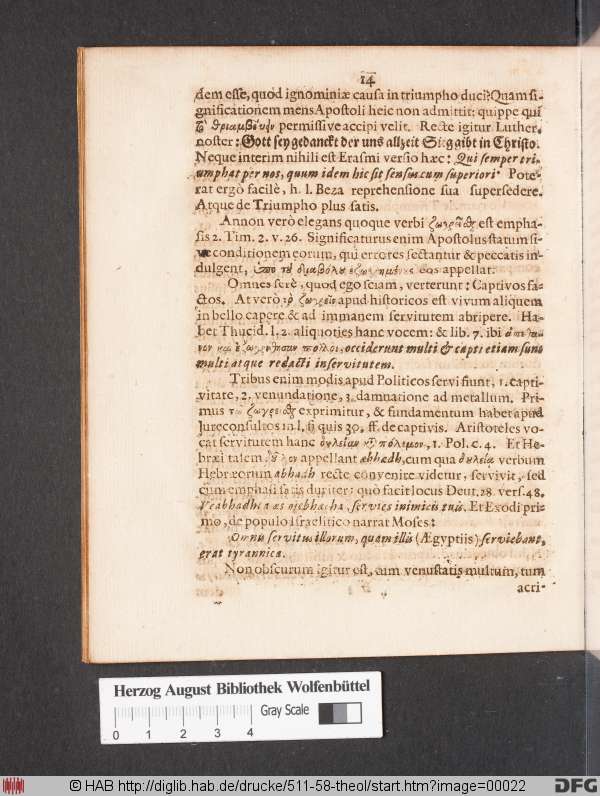 14
dem esse, quod ignominiæ causa in triumpho duci? Quam si-
gnificationem mens Apostoli heic non admittit: quippe qui
τὸ θριαμβεύειν permissive accipi velit. Recte igitur Luther,
noster: Gott sey gedanckt der uns allzeit Sieg gibt in Christo.
Neque interim nihili est Erasmi versio hæc: Qui semper tri-
umphat per nos, quum idem hic sit sensus cum superiori. Pote-
rat ergò facilè, h. l. Beza reprehensione sua supersedere.
Atque de Triumpho plus satis.
Annon verò elegans quoque verbi est empha-
sis 2. Tim. 2. v. 26. Significaturus enim Apostolus statum si-
ve conditionem eorum, qui errores sectantur & peccatis in-
dulgent, eos appellat.
Omnes ferè, quod ego sciam, verterunt: Captivos fa-
ctos. At verò τὸ ζωγρεῖν apud historicos est vivum aliquem
in bello capere & ad immanem servitutem abripere. Ha-
bet Thucid. l. 2. aliquoties hanc vocem: & lib. 7. ibi
πολλοι, occiderunt multi & capti etiam sunt
multi atque redacti in servitutem.
Tribus enim modis apud Politicos servi fiunt, 1. capti-
vitate, 2. venundatione, 3. damnatione ad metallum. Pri-
mus exprimitur, & fundamentum habet apud
Jureconsultos in l. si quis 30. ff. de captivis. Aristoteles vo-
cat servitutem hanc 1. Pol. c. 4. Et He-
bræi talem appellant abhædh, cum qua δουλεία verbum
Hebræorum abhadh recte convenire videtur, servivit, sed
cum emphasi satis duriter: quò facit locus Deut. 28. vers. 48.
servies inimicis tuis. Et Exodi pri-
mo, de populo Israelitico narrat Moses:
Omnis servitus illorum, quam illis (Ægyptiis) serviebant,
erat tyrannica.
Non obscurum igitur est, cum venustatis multum, tum
acri-
Herzog August Bibliothek Wolfenbüttel
0 1 2 3 4
Gray Scale
© HAB http://diglib.hab.de/drucke/511-58-theol/start.htm?image=00022
DFG